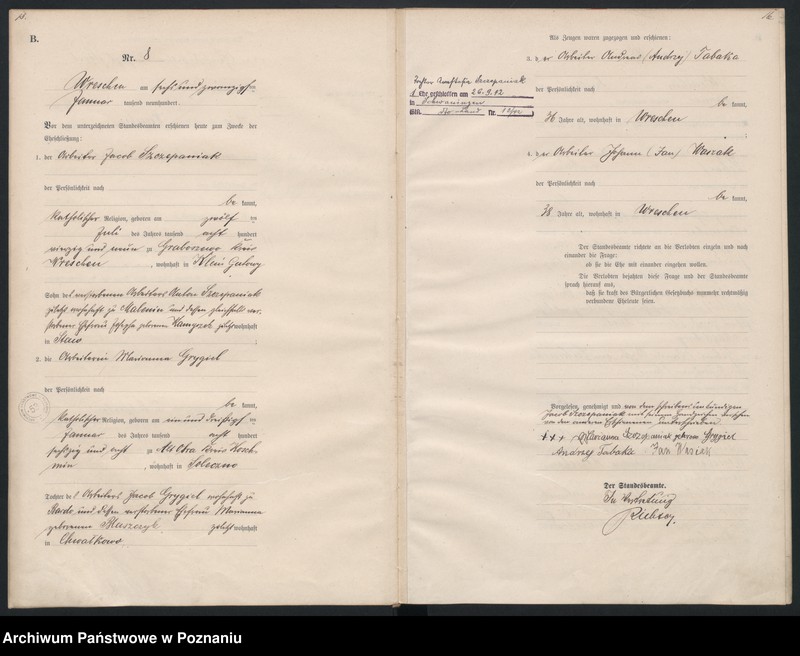 B.
Nr. 8
Wreschen am sechs und zwanzigsten
Januar tausend neunhundert.
Vor dem unterzeichneten Standesbeamten erschienen heute zum Zwecke der
Eheschließung:
1. der Arbeiter Jacob Szczepaniak
der Persönlichkeit nach
be kannt,
katholischer Religion, geboren am zwölften
Juli des Jahres tausend acht hundert
vierzig und neun zu Graboszewo Kreis
Wreschen, wohnhaft in Klein Gutowy
Sohn des verstorbenen Arbeiters Anton Szczepaniak
zuletzt wohnhaft zu Malenin und dessen gleichfalls ver-
storbener Ehefrau Josepha geborenen zuletzt wohnhaft
in Staw
2. die Arbeiterin Marianna Grygiel
der Persönlichkeit nach
be kannt,
katholischer Religion, geboren am ein und dreißigsten
Januar des Jahres tausend acht hundert
sechszig und acht zu Alt Obra Kreis Kosch-
min, wohnhaft in Soleczno
Tochter des Arbeiters Jacob Grygiel wohnhaft zu
und dessen verstorbener Ehefrau Marianna
geborenen zuletzt wohnhaft
in Chwalkowo
16.
Als Zeugen waren zugezogen und erschienen:
3. der Arbeiter Andreas (Andrzy) Tabaka
der Persönlichkeit nach
be kannt,
36 Jahre alt, wohnhaft in Wreschen
4. der Arbeiter Johann (Jan) Wasiak
der Persönlichkeit nach
be kannt,
38 Jahre alt, wohnhaft in Wreschen
Der Standesbeamte richtete an die Verlobten einzeln und nach
einander die Frage:
ob sie die Ehe mit einander eingehen wollen.
Die Verlobten bejahten diese Frage und der Standesbeamte
sprach hierauf aus,
daß sie kraft des Bürgerlichen Gesetzbuchs nunmehr rechtmäßig
verbundene Eheleute seien.
Vorgelesen, genehmigt und von dem schreibensunkundigen
Jacob Szczepaniak mit seinem Handzeichen versehen
von den anderen Erschienenen unterschrieben.
+++ Marianna Szczepaniak geborene Grygiel
Andrzej Tabaka Jan Wasiak
Der Standesbeamte.
In Vertretung
Tochter Szczepaniak
1 Ehe geschlossen am 26.9.12
in
StA. Nr.
Archiwum Państwowe w Poznaniu